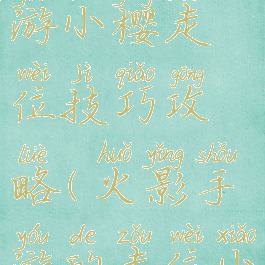 游小樱走
wèi jì qiǎo gōng
位技巧攻
lüè huǒ yǐng shǒu
略(火影手
yóu de zǒu wèi xiǎo
游的走位小